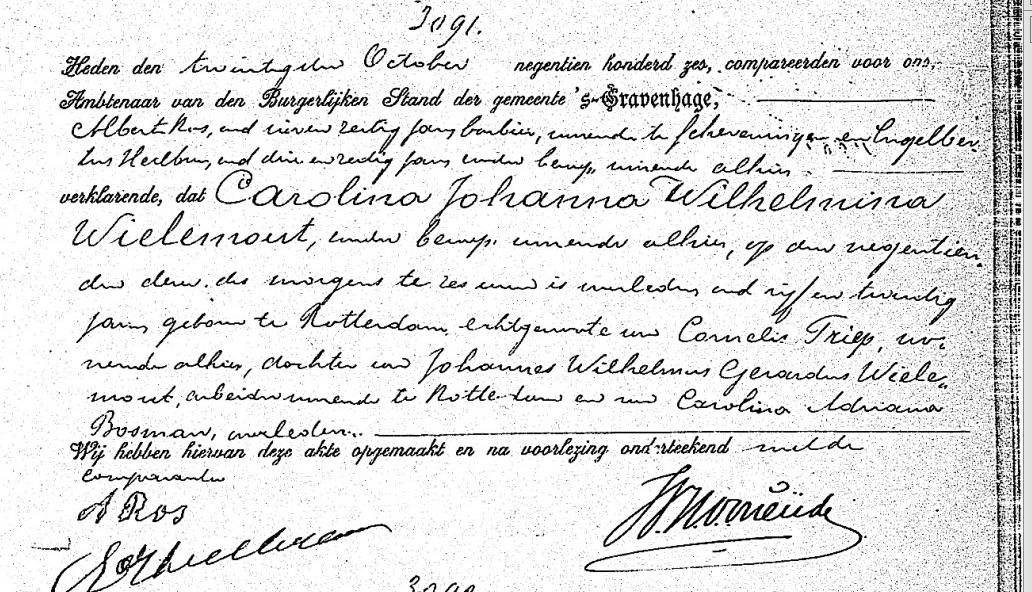 3091.
Heden den twintigsten October negentien honderd zes, compareerden voor ons,
Ambtenaar van den Burgerlijken Stand der gemeente 's-Gravenhage,
Albert Ros, oud zeven zestig jaar barbier, wonende te Scheveningen, en Engelber-
tus Heilbron, oud drie en zestig jaar zonder beroep, wonende alhier.
verklarende, dat Carolina Johanna Wilhelmina
Wielemout, zonder beroep. wonende alhier, op den negentien-
den dezer. des morgens te zes ure is overleden oud vijf en twintig
jaren geboren te Rotterdam, echtgenoote van Cornelis Triep, wo-
nende alhier, dochter van Johannes Wilhelmus Gerardus Wiele-
mout, arbeider wonende te Rotterdam en van Carolina Adriana
Bosman, overleden.
Wij hebben hiervan deze akte opgemaakt en na voorlezing onderteekend met de
comparanten
A Ros